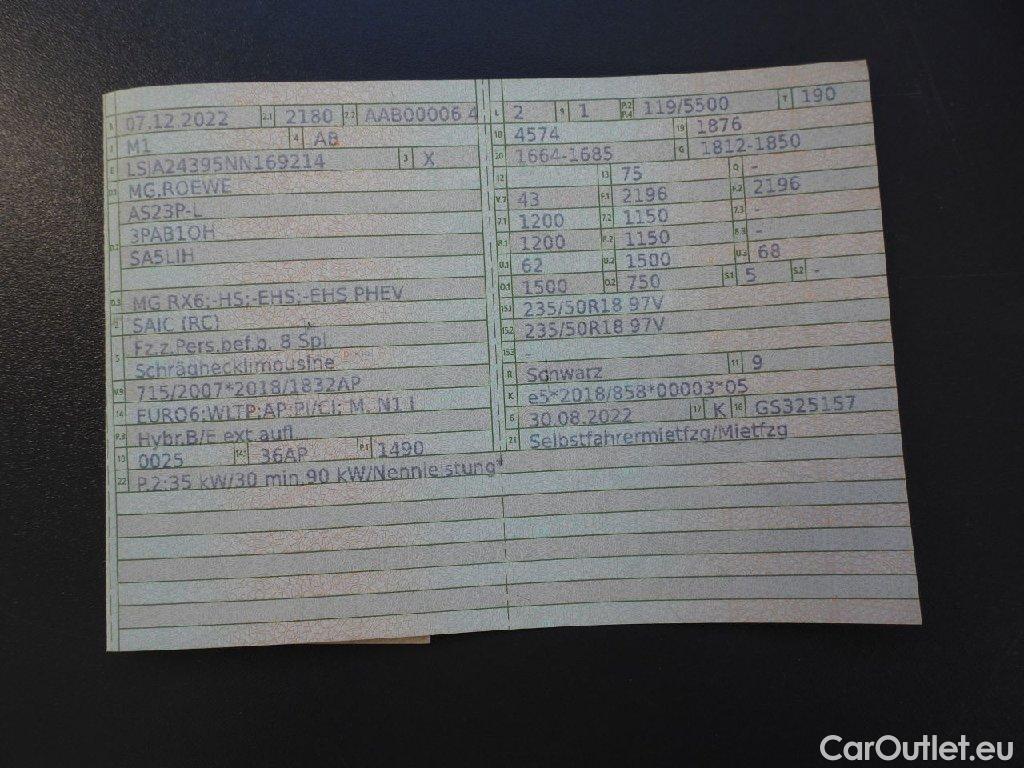 B 07.12.2022 2.1 2180 2.2 AAB00006 4
J M1 4 AB
E LSJA24395NN169214 3 X
D.1 MG,ROEWE
AS23P-L
D.2 3PAB1OH
SA5LIH
D.3 MG RX6;-HS;-EHS;-EHS PHEV
2 SAIC (RC)
5 Fz.z.Pers.bef.b. 8 Spl.
Schräghecklimousine
V.9 715/2007*2018/1832AP
14 EURO6;WLTP;AP;PI/CI; M, N1 I
P.3 Hybr.B/E ext.aufl
10 0025 14.1 36AP P.1 1490
22 P.2:35 kW/30 min,90 kW/Nennleistung*
L 2 9 1 P.2 P.4 119/5500 T 190
18 4574 19 1876
20 1664-1685 G 1812-1850
12 13 75 Q -
V.7 43 F.1 2196 F.2 2196
7.1 1200 7.2 1150 7.3 -
8.1 1200 8.2 1150 8.3 -
U.1 62 U.2 1500 U.3 68
O.1 1500 O.2 750 S.1 5 S.2 -
15.1 235/50R18 97V
15.2 235/50R18 97V
15.3 -
R Schwarz 11 9
K e5*2018/858*00003*05
6 30.08.2022 17 K 16 GS325157
21 Selbstfahrermietfzg/Mietfzg
CarOutlet.eu